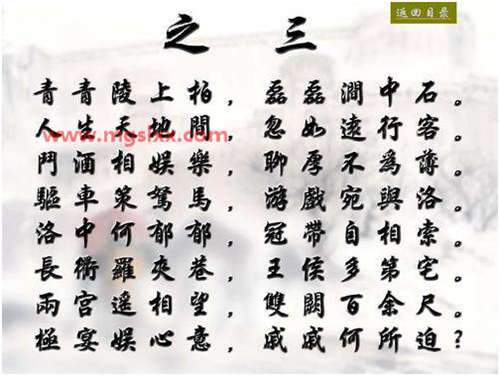 返回目录
之 三
青青陵上柏，磊磊澗中石。
人生天地間，忽如遠行客。
www.mgslxx.com
鬥酒相娛樂，聊厚不為薄。
驅車策駑馬，游戲宛與洛。
洛中何郁郁，冠帶自相索。
長衢羅夾巷，王侯多第宅。
兩宮遙相望，雙闕百余尺。
極宴娛心意，戚戚何所迫？